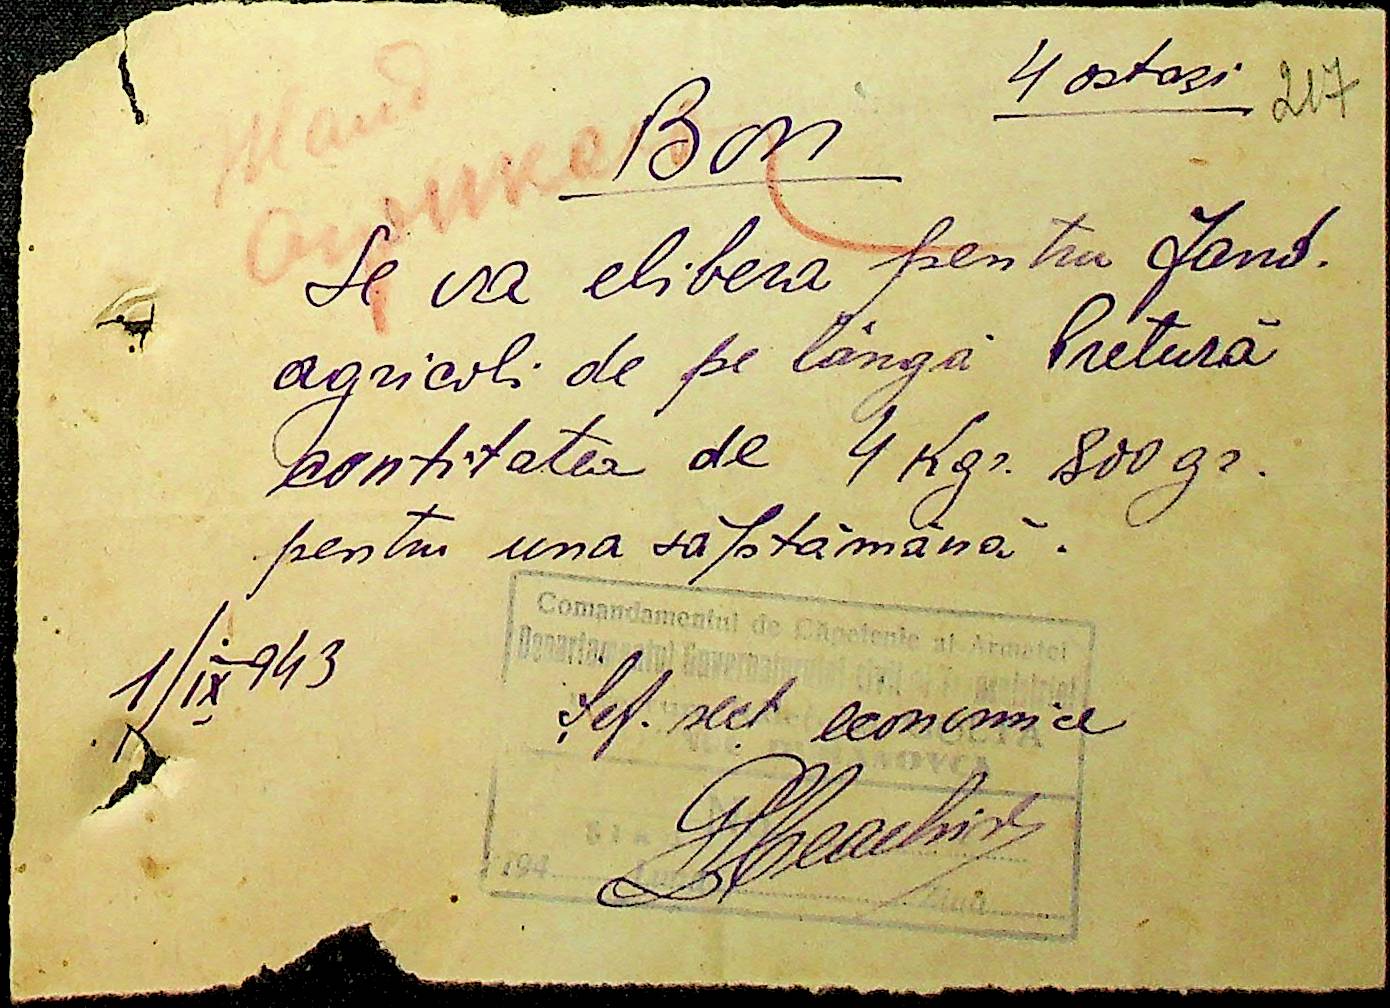 4 ostași 217
Жанд
Bon
Se va elibera pentru Jand.
agricoli de pe lângă Pretură
cantitatea de 4 Kgr. 800 gr.
pentru una săptămână.
1/IX 943
Comandamentul de Căpetenie al Armatei
Departamentul Guvernatorului civil al Transnistriei
Șef. sect economice
194 Luna Ziua